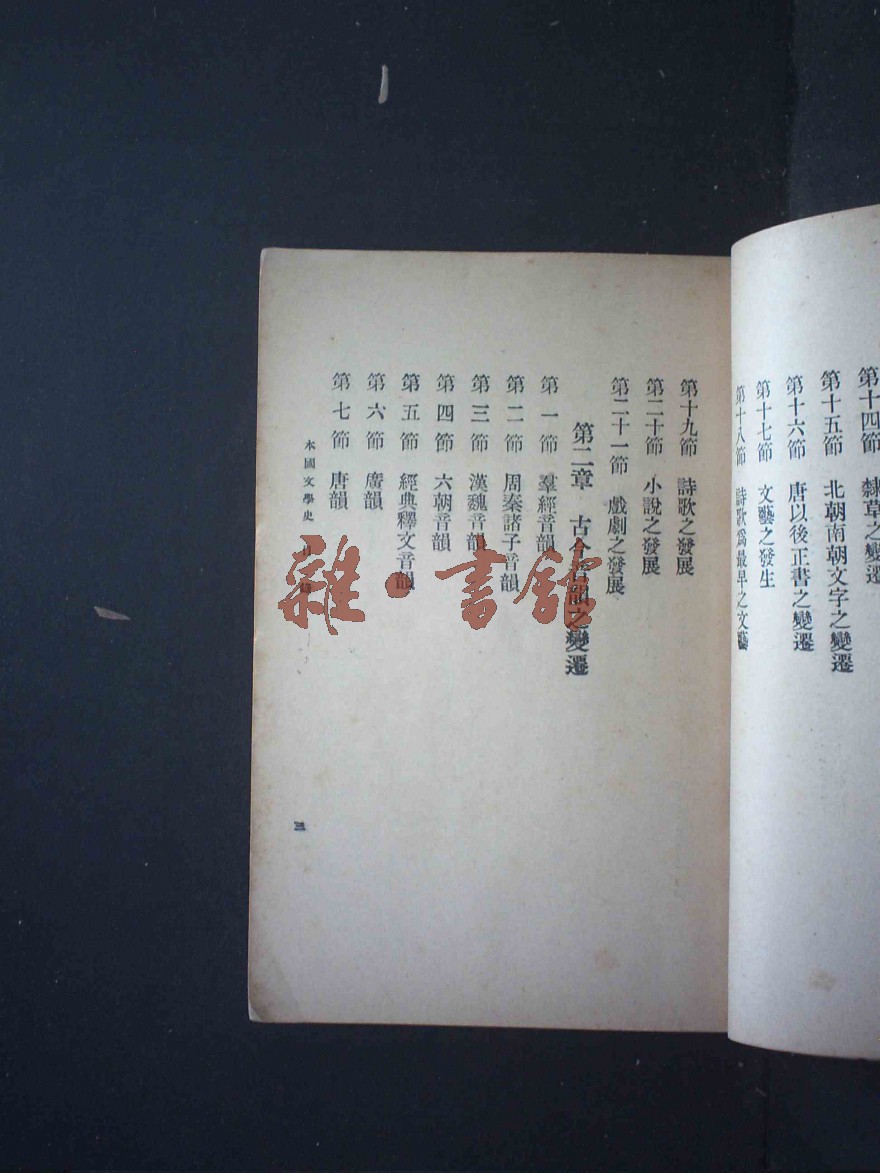 第十四節　隸草之變遷
第十五節　北朝南朝文字之變遷
第十六節　唐以後正書之變遷
第十七節　文藝之發生
第十八節　詩歌爲最早之文藝
第十九節　詩歌之發展
第二十節　小說之發展
第二十一節　戲劇之發展
第二章　古今音韻之變遷
第一節　羣經音韻
第二節　周秦諸子音韻
第三節　漢魏音韻
第四節　六朝音韻
第五節　經典釋文音韻
第六節　廣韻
第七節　唐韻
本國文學史
三
雜·書館